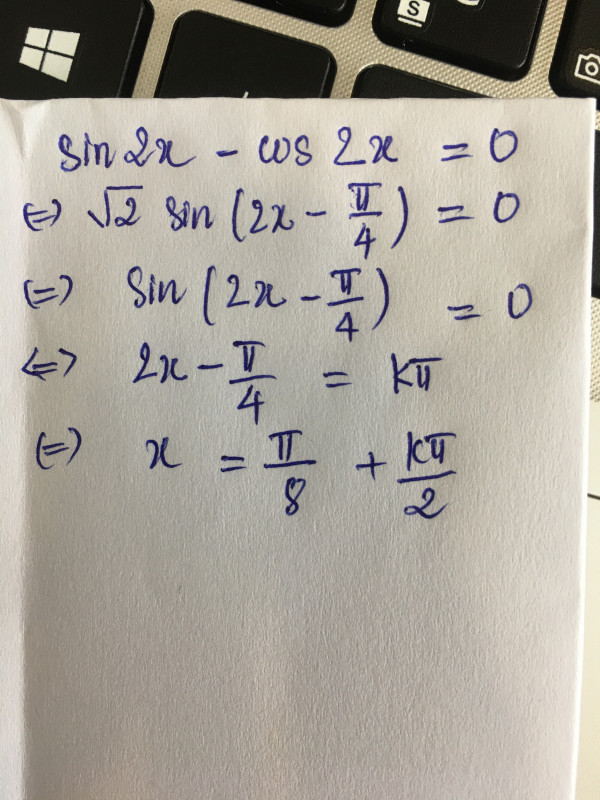 S
sin 2x - cos 2x = 0
⇔ √2 sin (2x - π/4) = 0
⇔ sin (2x - π/4) = 0
⇔ 2x - π/4 = kπ
⇔ x = π/8 + kπ/2